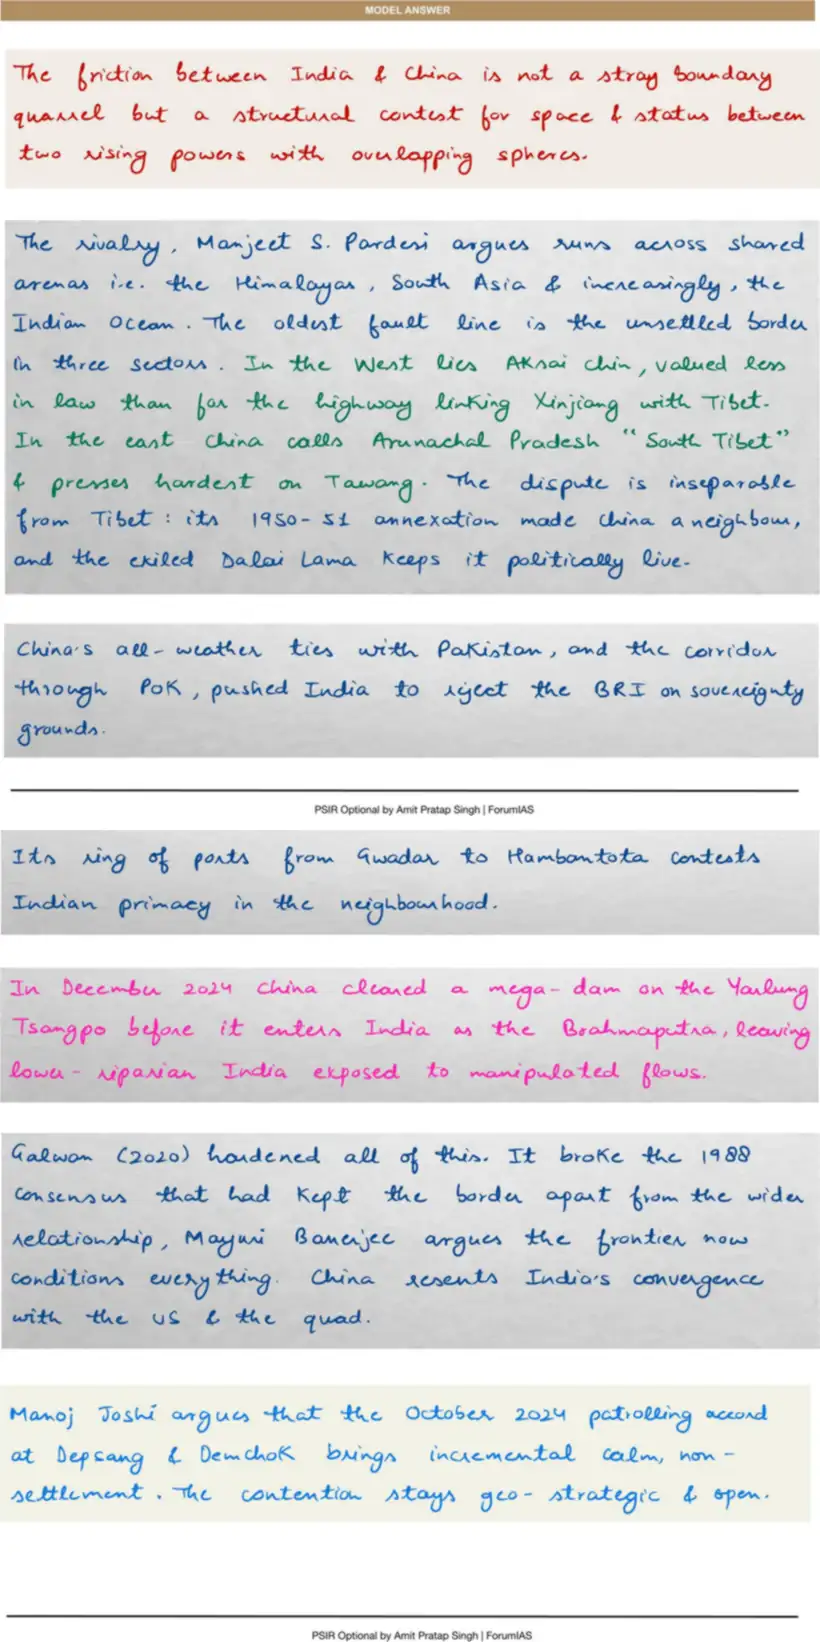 MODEL ANSWER
The friction between India & China is not a stray boundary
quarrel but a structural contest for space & status between
two rising powers with overlapping spheres.
The rivalry, Manjeet S. Pardesi argues runs across shared
arenas i.e. the Himalayas, South Asia & increasingly, the
Indian Ocean. The oldest fault line is the unsettled border
in three sectors. In the West lies Aksai Chin, valued less
in law than for the highway linking Xinjiang with Tibet.
In the east China calls Arunachal Pradesh "South Tibet"
& presses hardest on Tawang. The dispute is inseparable
from Tibet: its 1950-51 annexation made China a neighbour,
and the exiled Dalai Lama keeps it politically live.
China's all-weather ties with Pakistan, and the corridor
through PoK, pushed India to reject the BRI on sovereignty
grounds.
PSIR Optional by Amit Pratap Singh | ForumIAS
Its ring of ports from Gwadar to Hambantota contests
Indian primacy in the neighbourhood.
In December 2024 China cleared a mega-dam on the Yarlung
Tsangpo before it enters India as the Brahmaputra, leaving
lower-riparian India exposed to manipulated flows.
Galwan (2020) hardened all of this. It broke the 1988
consensus that had kept the border apart from the wider
relationship, Mayuri Banerjee argues the frontier now
conditions everything. China resents India's convergence
with the US & the quad.
Manoj Joshi argues that the October 2024 patrolling accord
at Depsang & Demchok brings incremental calm, non-
settlement. The contention stays geo-strategic & open.
PSIR Optional by Amit Pratap Singh | ForumIAS